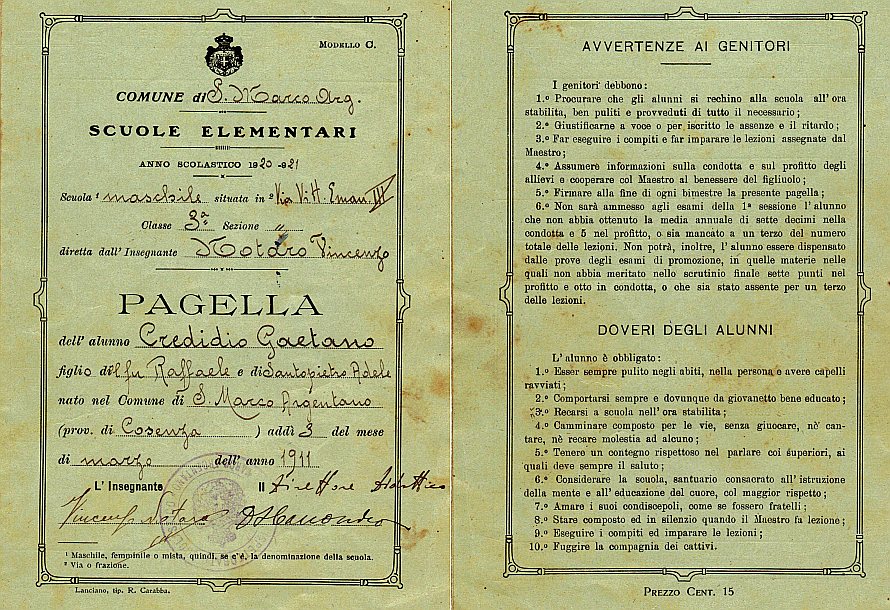 MODELLO C.
COMUNE di S. Marco Arg.
SCUOLE ELEMENTARI
ANNO SCOLASTICO 1920-921
Scuola ¹ maschile situata in ² Via Vitt. Eman. III
Classe 3ª Sezione "
diretta dall'Insegnante Notaro Vincenzo
PAGELLA
dell'alunno Credidio Gaetano
figlio di fu Raffaele e di Santopietro Adele
nato nel Comune di S. Marco Argentano
(prov. di Cosenza ) addì 3 del mese
di marzo dell'anno 1911
L'Insegnante Il Direttore Didattico
Vincenzo Notaro
¹ Maschile, femminile o mista, quindi, se c'è, la denominazione della scuola.
² Via o frazione.
Lanciano, tip. R. Carabba.
AVVERTENZE AI GENITORI
I genitori debbono:
1.º Procurare che gli alunni si rechino alla scuola all'ora
stabilita, ben puliti e provveduti di tutto il necessario;
2.º Giustificarne a voce o per iscritto le assenze e il ritardo;
3.º Far eseguire i compiti e far imparare le lezioni assegnate dal
Maestro;
4.º Assumere informazioni sulla condotta e sul profitto degli
allievi e cooperare col Maestro al benessere del figliuolo;
5.º Firmare alla fine di ogni bimestre la presente pagella;
6.º Non sarà ammesso agli esami della 1ª sessione l'alunno
che non abbia ottenuto la media annuale di sette decimi nella
condotta e 5 nel profitto, o sia mancato a un terzo del numero
totale delle lezioni. Non potrà, inoltre, l'alunno essere dispensato
dalle prove degli esami di promozione, in quelle materie nelle
quali non abbia meritato nello scrutinio finale sette punti nel
profitto e otto in condotta, o che sia stato assente per un terzo
delle lezioni.
DOVERI DEGLI ALUNNI
L'alunno è obbligato:
1.º Esser sempre pulito negli abiti, nella persona e avere capelli
ravviati;
2.º Comportarsi sempre e dovunque da giovanetto bene educato;
3.º Recarsi a scuola nell'ora stabilita;
4.º Camminare composto per le vie, senza giuocare, nè can-
tare, nè recare molestia ad alcuno;
5.º Tenere un contegno rispettoso nel parlare coi superiori, ai
quali deve sempre il saluto;
6.º Considerare la scuola, santuario consacrato all'istruzione
della mente e all'educazione del cuore, col maggior rispetto;
7.º Amare i suoi condiscepoli, come se fossero fratelli;
8.º Stare composto ed in silenzio quando il Maestro fa lezione;
9.º Eseguire i compiti ed imparare le lezioni;
10.º Fuggire la compagnia dei cattivi.
PREZZO CENT. 15